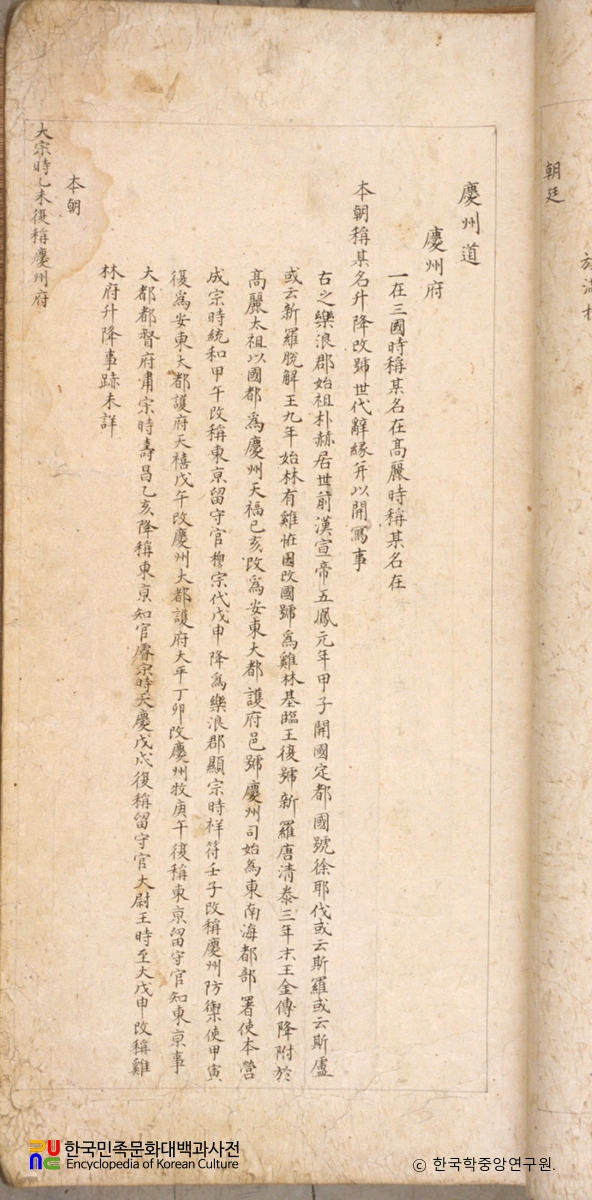 朝廷
慶州道
慶州府
一在三國時稱某名在高麗時稱某名在
本朝稱某名升降改號世代辭緣幷以開寫事
古之樂浪郡始祖朴赫居世前漢宣帝五鳳元年甲子開國定都國號徐耶伐或云斯羅或云斯盧
或云新羅脫解王九年始林有雞恠因改國號爲雞林基臨王復號新羅唐清泰三年末王金傅降附於
高麗太祖以國都爲慶州天福已亥改爲安東大都護府邑號慶州司始爲東南海都部署使本營
成宗時統和甲午改稱東京留守官穆宗代戊申降爲樂浪郡顯宗時祥符壬子改稱慶州防禦使甲寅
復爲安東大都護府天禧戊午改慶州大都護府大平丁卯改慶州牧庚午復稱東京留守官知東京事
大都都督府肅宗時壽昌乙亥降稱東京知官睿宗時天慶戊戌復稱留守官大尉王時至大戊申改稱雞
林府升降事跡未詳
本朝
大宗時乙未復稱慶州府
한국민족문화대백과사전
Encyclopedia of Korean Culture
© 한국학중앙연구원.